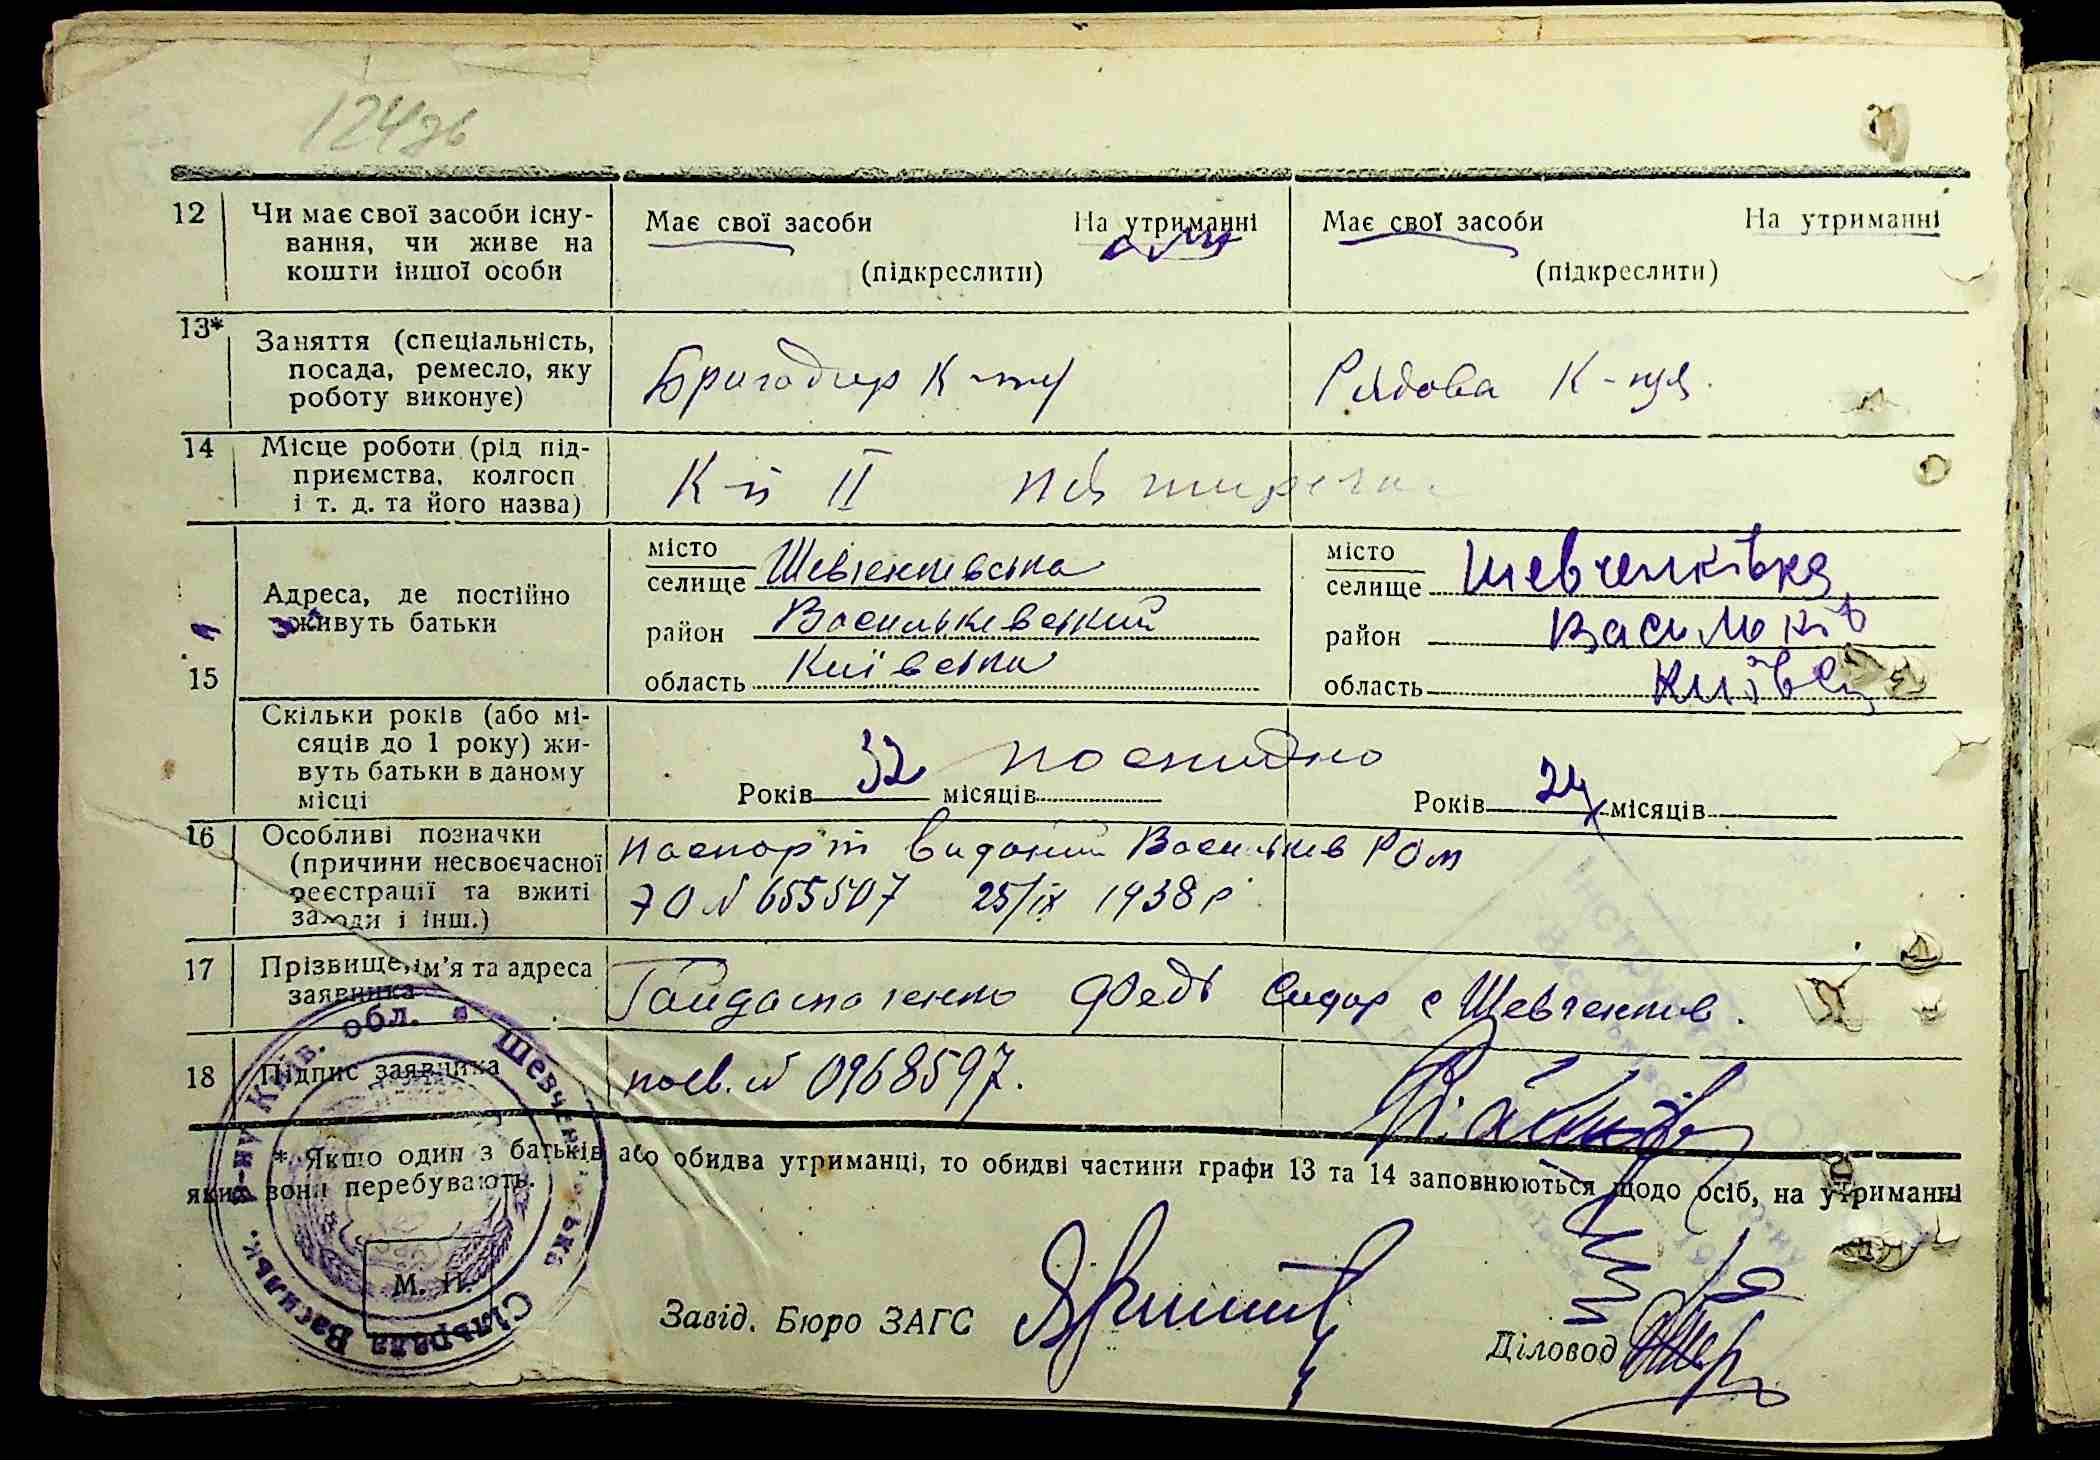 124зв
12 Чи має свої засоби існу-
вання, чи живе на
кошти іншої особи
Має свої засоби На утриманні
(підкреслити)
Має свої засоби На утриманні
(підкреслити)
13* Заняття (спеціальність,
посада, ремесло, яку
роботу виконує)
Бригадир
Рядова К-ця.
14 Місце роботи (рід під-
приємства, колгосп
і т. д. та його назва)
К-п II
15 Адреса, де постійно
живуть батьки
місто
селище Шевченківська
район Васильківський
область Київська
місто
селище Шевченківка
район Васильків
область Київс
Скільки років (або мі-
сяців до 1 року) жи-
вуть батьки в даному
місці
Років 32 місяців
Років 24 місяців
16 Особливі позначки
(причини несвоєчасної
реєстрації та вжиті
заходи і інш.)
паспорт виданий Васильків РОМ
№ 655507 25/IX 1938 р
17 Прізвище, ім'я та адреса
заявника
Федь Сидор с Шевченків.
18 Підпис заявника
посв. № 0968597.
* Якщо один з батьків або обидва утриманці, то обидві частини графи 13 та 14 заповнюються щодо осіб, на утриманні
яких вони перебувають.
Шевченківська Сільрада Васильк. р-ну Київ. обл.
М. П.
Завід. Бюро ЗАГС
Діловод